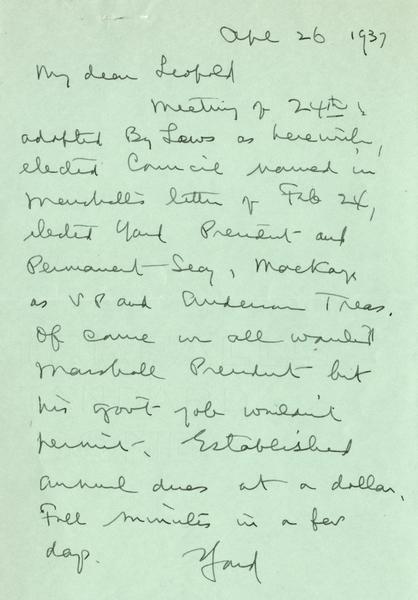 Apr 26 1937
My dear Leopold
Meeting of 24th,
adopted By Laws as herewith,
elected Council named in
Marshall's letter of Feb 24,
elected Yard President and
Permanent Secy, Mackaye
as V P and Anderson Treas.
Of course we all wanted
Marshall President but
his gov't job wouldn't
permit. Established
annual dues at a dollar.
Full minutes in a few
days. Yard